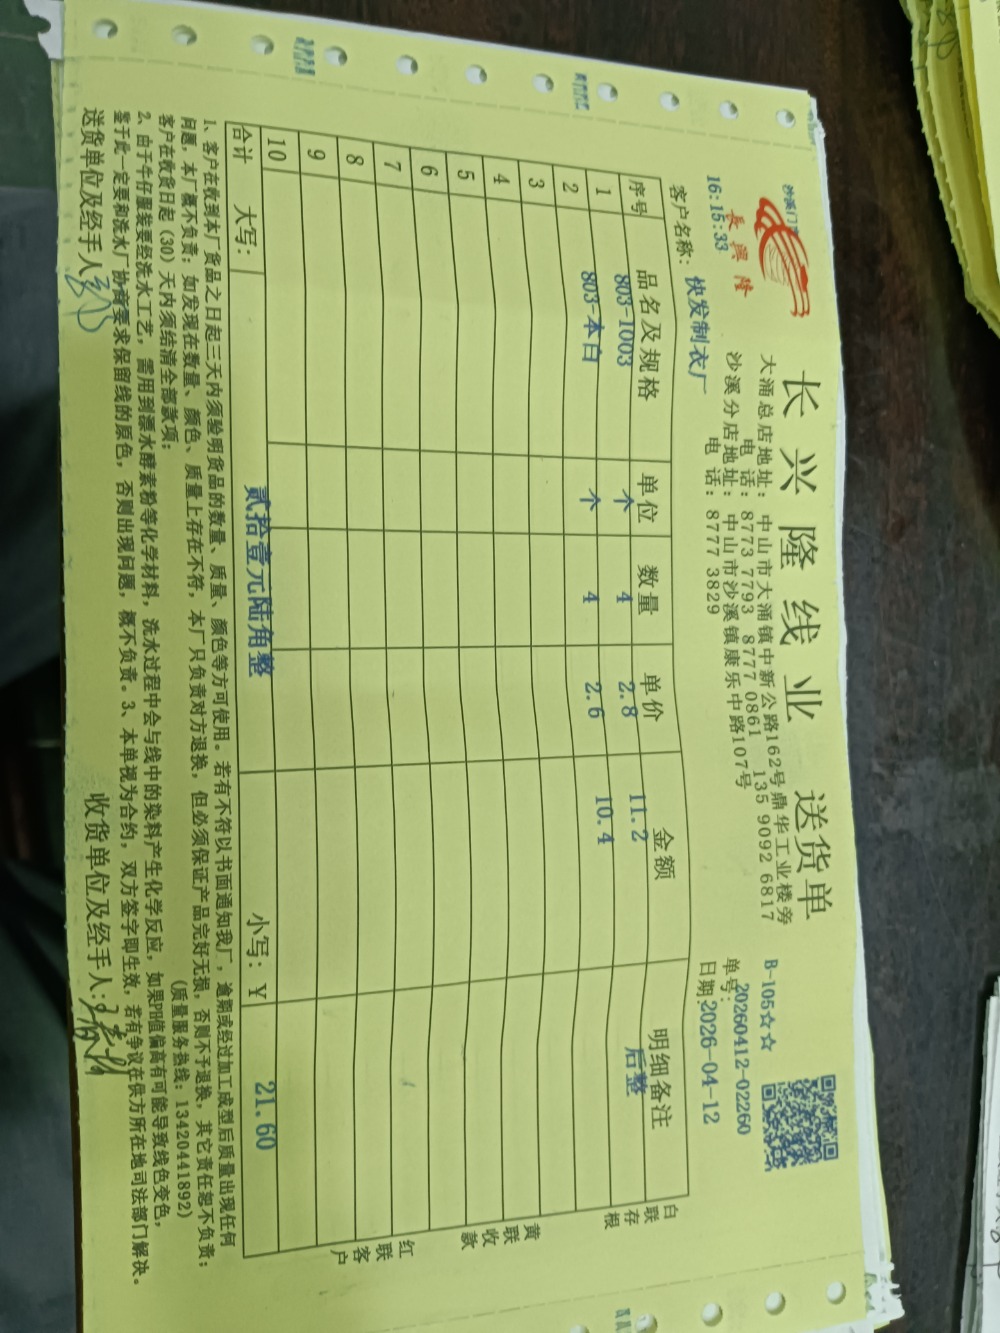 沙溪门市
長興隆
长兴隆线业 送货单
大涌总店地址：中山市大涌镇中新公路162号鼎华工业楼旁
电话：8773 7793 8777 0861 135 9092 6817
沙溪分店地址：中山市沙溪镇康乐中路107号
电话：8777 3829
B-105☆☆
单号：20260412-02260
日期：2026-04-12
16:15:33
客户名称：快发制衣厂
序号 品名及规格 单位 数量 单价 金额 明细备注
1 803-1003 个 4 2.8 11.2 后整
2 803-本白 个 4 2.6 10.4
3
4
5
6
7
8
9
10
合计 大写：贰拾壹元陆角整 小写：¥ 21.60
白联存根
黄联收款
红联客户
1、客户在收到本厂货品之日起三天内须验明货品的数量、质量、颜色等方可使用。若有不符以书面通知我厂，逾期或经过加工成型后质量出现任何
问题，本厂概不负责；如发现在数量、颜色、质量上存在不符，本厂只负责对方退换，但必须保证产品完好无损，否则不予退换，其它责任恕不负责；
客户在收货日起（30）天内须结清全部款项；
(质量服务热线：13420441892)
2、由于牛仔服装要经洗水工艺，需用到漂水酵素粉等化学材料，洗水过程中会与线中的染料产生化学反应，如果PH值偏高有可能导致线色变色，
鉴于此一定要和洗水厂协商要求保留线的原色，否则出现问题，概不负责。3、本单视为合约，双方签字即生效，若有争议在供方所在地司法部门解决。
送货单位及经手人： 收货单位及经手人：